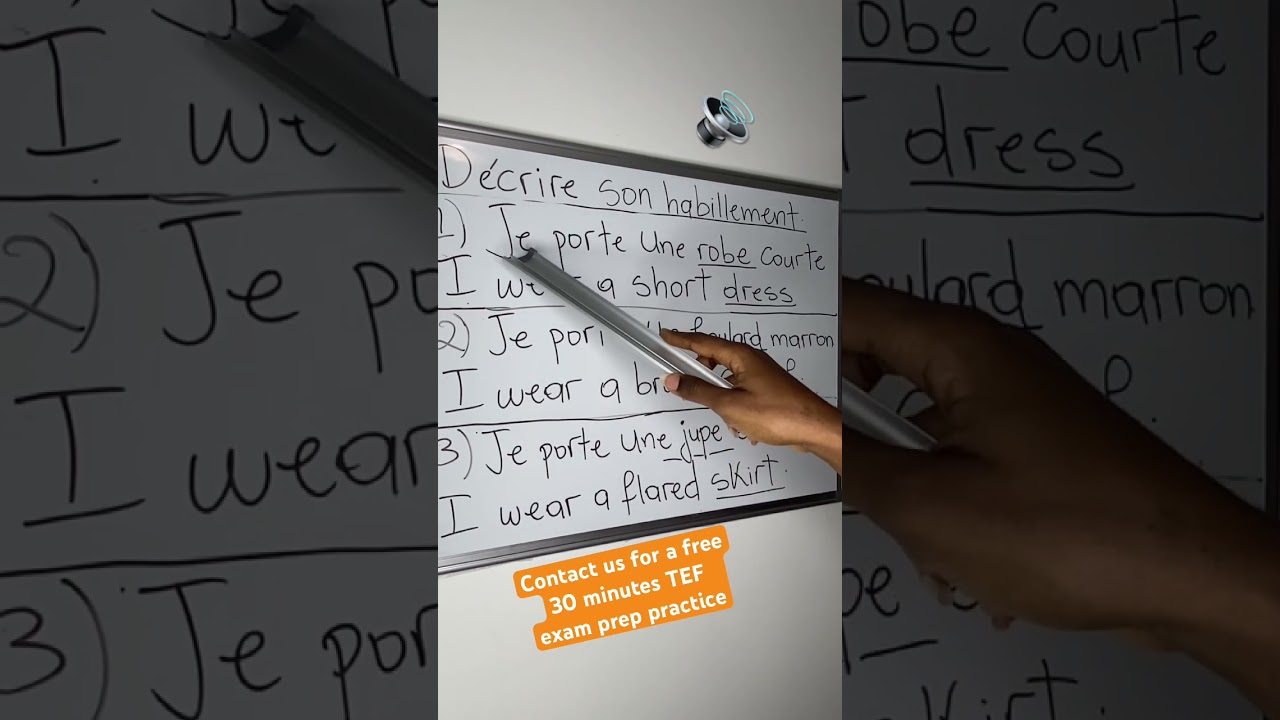 Décrire son habillement.
1) Je porte une robe courte
I a short dress
2) Je marron
I wear a
3) Je porte une jupe
I wear a flared skirt.
Contact us for a free
30 minutes TEF
exam prep practice